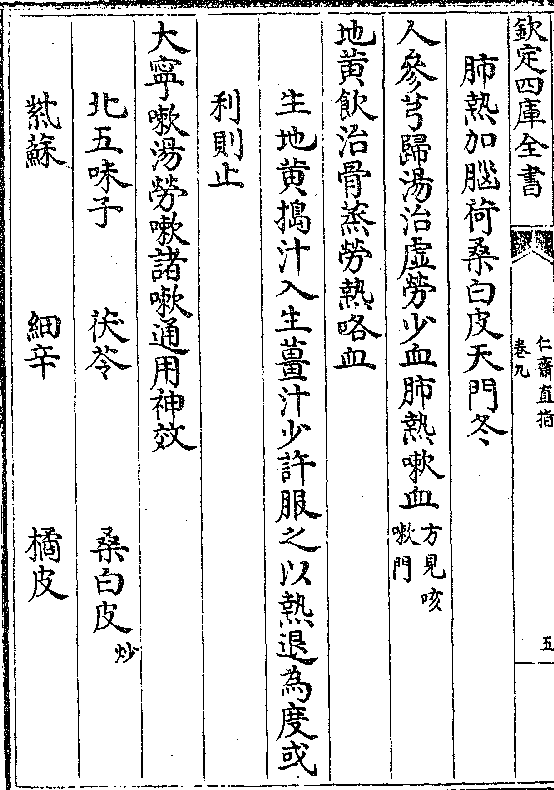 欽定四庫全書
仁齋直指
卷九
五
肺熱加腦荷桑白皮天門冬
人參芎歸湯治虛勞少血肺熱嗽血方見咳嗽門
地黄飲治骨蒸勞熱咯血
生地黄搗汁入生薑汁少許服之以熱退為度或
利則止
大寧嗽湯勞嗽諸嗽通用神效
北五味子 茯苓 桑白皮炒
紫蘇 細辛 橘皮